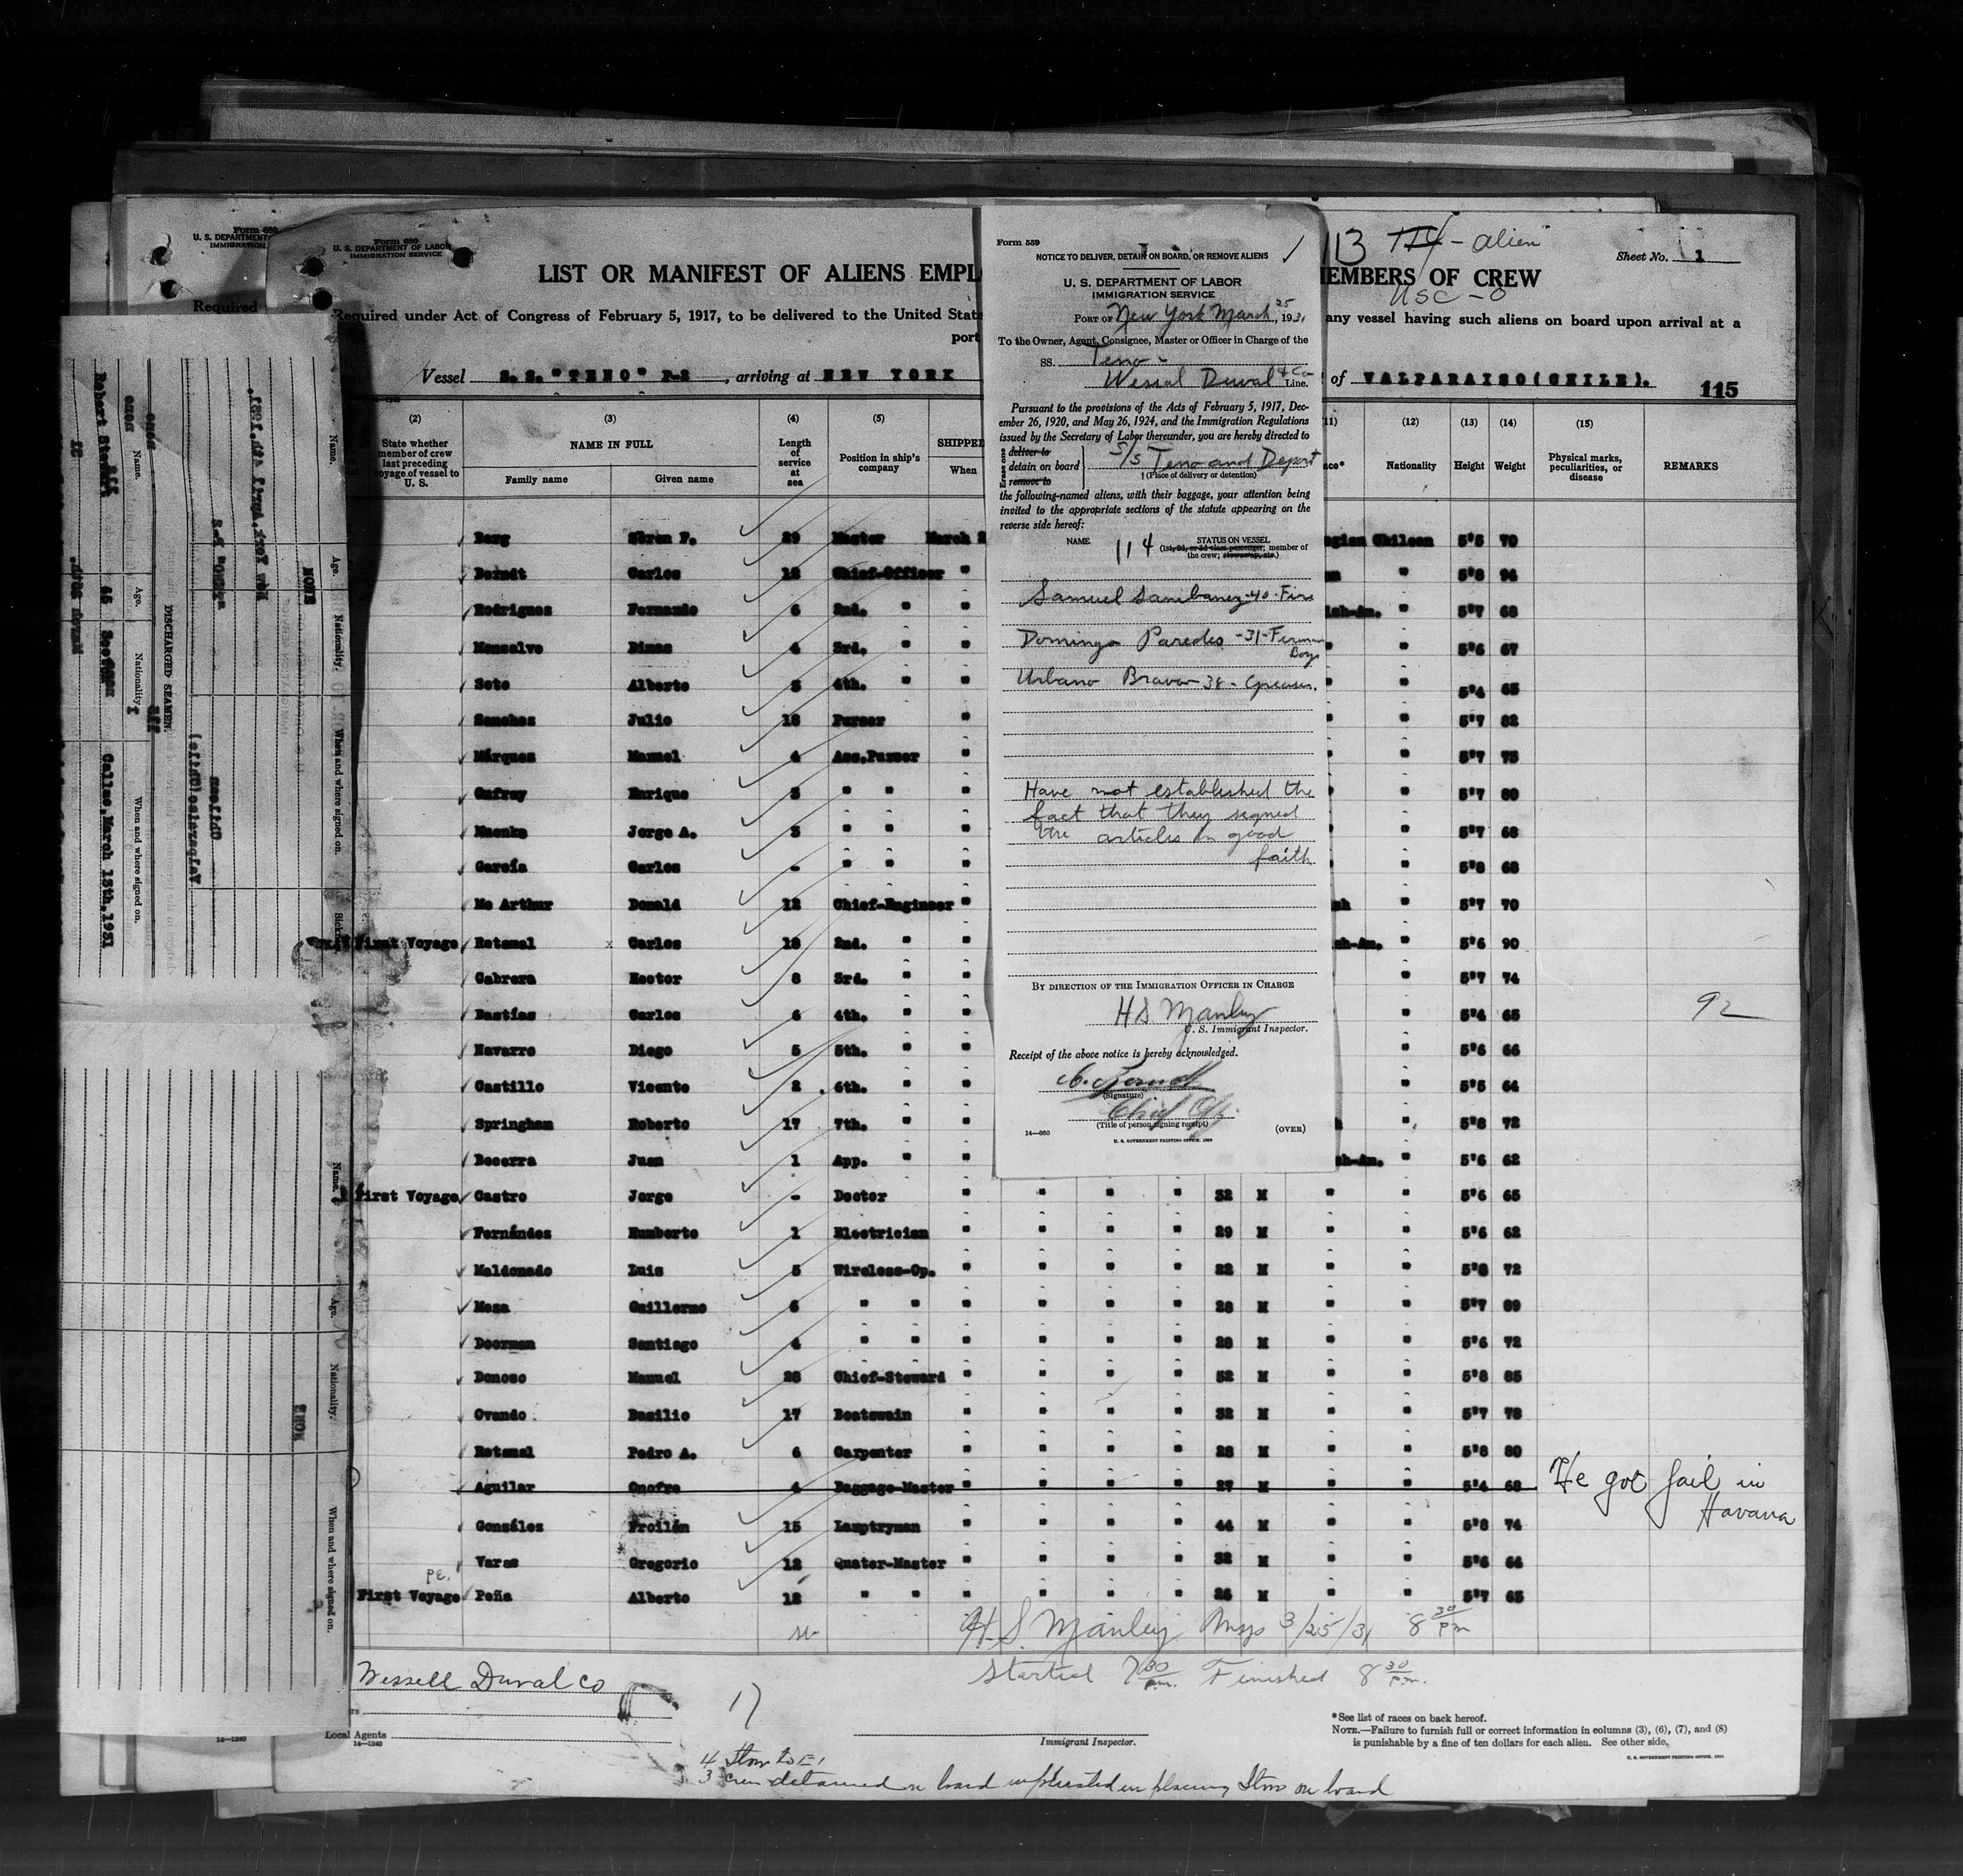 Form 680
U. S. DEPARTMENT OF LABOR
IMMIGRATION SERVICE
LIST OR MANIFEST OF ALIENS EMPL
EMBERS OF CREW
113 114 - alien
USC - 0
Sheet No. 1
Required under Act of Congress of February 5, 1917, to be delivered to the United State
any vessel having such aliens on board upon arrival at a
port
Vessel S. S. "TENO" , arriving at NEW YORK
of VALPARAISO(CHILE). 115
(2) (3) (4) (5) (11) (12) (13) (14) (15)
State whether member of crew last preceding voyage of vessel to U. S.
NAME IN FULL
Family name Given name
Length of service at sea
Position in ship's company
SHIPPED
When
Nationality Height Weight
Physical marks, peculiarities, or disease
REMARKS
Berg Sören F. 29 Master March 2 Chilean 5'5 70
Berndt Carlos 12 Chief-Officer " " 5'8 94
Rodriguez Fernando 6 2nd. " " " 5'7 68
Monsalve Dimas 4 3rd. " " " 5'6 67
Soto Alberto 3 4th. " " " 5'4 65
Sanchez Julio 18 Purser " " 5'7 82
Márquez Manuel 4 Ass.Purser " " 5'7 75
Enrique 3 " " " " 5'7 80
Jorge A. 3 " " " " 5'7 68
García Carlos - " " " " 5'8 68
Mc Arthur Donald 12 Chief-Engineer " " 5'7 70
First Voyage Retamal Carlos 18 2nd. " " " 5'6 90
Cabrera Hector 8 3rd. " " " 5'7 74
Bastías Carlos 6 4th. " " " 5'4 65
Navarro Diego 5 5th. " " " 5'6 66
Castillo Vicente 2 6th. " " " 5'5 64
Springham Roberto 17 7th. " " " 5'8 72
Becerra Juan 1 App. " " " 5'6 62
First Voyage Castro Jorge - Doctor " " " " 32 M " " 5'6 65
Fernández Humberto 1 Electrician " " " " 29 M " " 5'6 62
Maldonado Luis 5 Wireless-Op. " " " " 22 M " " 5'8 72
Meza Guillermo 6 " " " " " " 28 M " " 5'7 89
Doorman Santiago 4 " " " " " " 28 M " " 5'6 72
Donoso Manuel 28 Chief-Steward " " " " 52 M " " 5'8 85
Ovando Basilio 17 Boatswain " " " " 32 M " " 5'7 78
Retamal Pedro A. 6 Carpenter " " " " 28 M " " 5'8 80
Aguilar Onofre 4 Baggage-Master " " " " 27 M " " 5'4 68 He got jail in Havana
González Froilán 15 Lamptryman " " " " 44 M " " 5'8 74
Varas Gregorio 12 Quater-Master " " " " 32 M " " 5'6 64
First Voyage Peña Alberto 12 " " " " " " 26 M " " 5'7 65
92
H. S. Manley 3/25/31 8 30 pm
Started 7 30 pm. Finished 8 30 pm.
Wessell Duval Co
17
Local Agents
14—1240
Immigrant Inspector.
* See list of races on back hereof.
NOTE.—Failure to furnish full or correct information in columns (3), (6), (7), and (8)
is punishable by a fine of ten dollars for each alien. See other side.
U. S. GOVERNMENT PRINTING OFFICE
4 Stow to E I
3 crew detained on board implicated in placing Stow on board
Form 559
NOTICE TO DELIVER, DETAIN ON BOARD, OR REMOVE ALIENS
U. S. DEPARTMENT OF LABOR
IMMIGRATION SERVICE
PORT OF New York March 25, 1931
To the Owner, Agent, Consignee, Master or Officer in Charge of the
SS. Teno
Wessal Duval & Co Line.
Pursuant to the provisions of the Acts of February 5, 1917, Dec-
ember 26, 1920, and May 26, 1924, and the Immigration Regulations
issued by the Secretary of Labor thereunder, you are hereby directed to
Erase one
deliver to
detain on board
remove to
S/S Teno and Deport
† (Place of delivery or detention)
the following-named aliens, with their baggage, your attention being
invited to the appropriate sections of the statute appearing on the
reverse side hereof:
NAME 114 STATUS ON VESSEL
(1st, 2d, or 3d class passenger; member of
the crew; stowaway, etc.)
Samuel Sanibanez-40-Fire
Domingo Paredes -31- Fireman Boy
Urbano Bravo - 38 - Greaser.
Have not established the
fact that they signed
the articles in good
faith
BY DIRECTION OF THE IMMIGRATION OFFICER IN CHARGE
H S Manley
U. S. Immigrant Inspector.
Receipt of the above notice is hereby acknowledged.
C. Berndt
(Signature)
Chief Off.
(Title of person signing receipt)
14—660
(OVER)
U. S. GOVERNMENT PRINTING OFFICE
Form 680
U. S. DEPARTMENT
IMMIGRATION
Required
Name. Age. Nationality. When and where signed on.
DISCHARGED SEAMEN.
Robert 45
Callao, March 13th, 1931
Valparaiso(Chile)
NONE